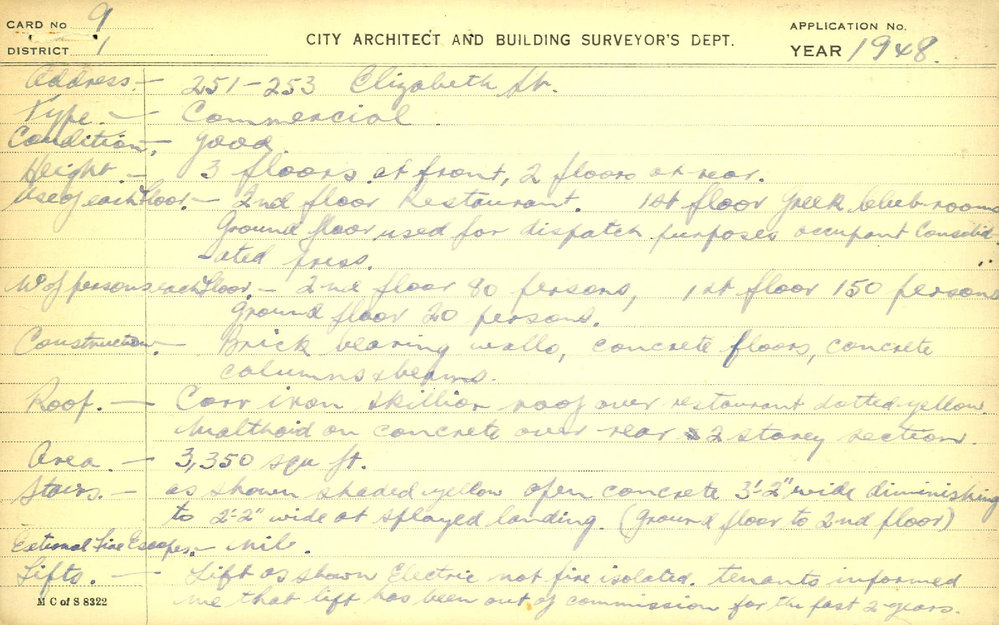 CARD No 9
DISTRICT 1
CITY ARCHITECT AND BUILDING SURVEYOR'S DEPT.
APPLICATION No.
YEAR 1948.
Address:- 251-253 Elizabeth St.
Type.- Commercial.
Condition.- good.
Height.- 3 floors at front, 2 floors at rear.
Use of each Floor.- 2nd floor Restaurant. 1st floor Greek club rooms
Ground floor used for dispatch purposes occupant Consolid-
ated press.
No of persons each Floor.- 2nd floor 80 persons, 1st floor 150 persons
Ground floor 20 persons.
Construction.- Brick bearing walls, concrete floors, concrete
columns & beams.
Roof.- Corr iron skillion roof over restaurant dotted yellow.
Malthoid on concrete over rear 2 storey section.
Area.- 3,350 squ ft.
Stairs.- as shown shaded yellow open concrete 3'-2" wide diminishing
to 2'-2" wide at splayed landing. (Ground floor to 2nd floor)
External Fire Escapes.- Nil.
Lifts.- Lift as shown Electric not fire isolated. tenants informed
me that lift has been out of commission for the past 2 years.
M C of S 8322